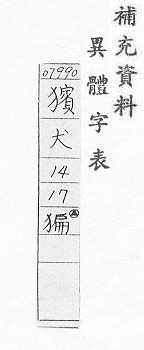 補充資料
異體字表
07990
獱
犬
14
17
猵